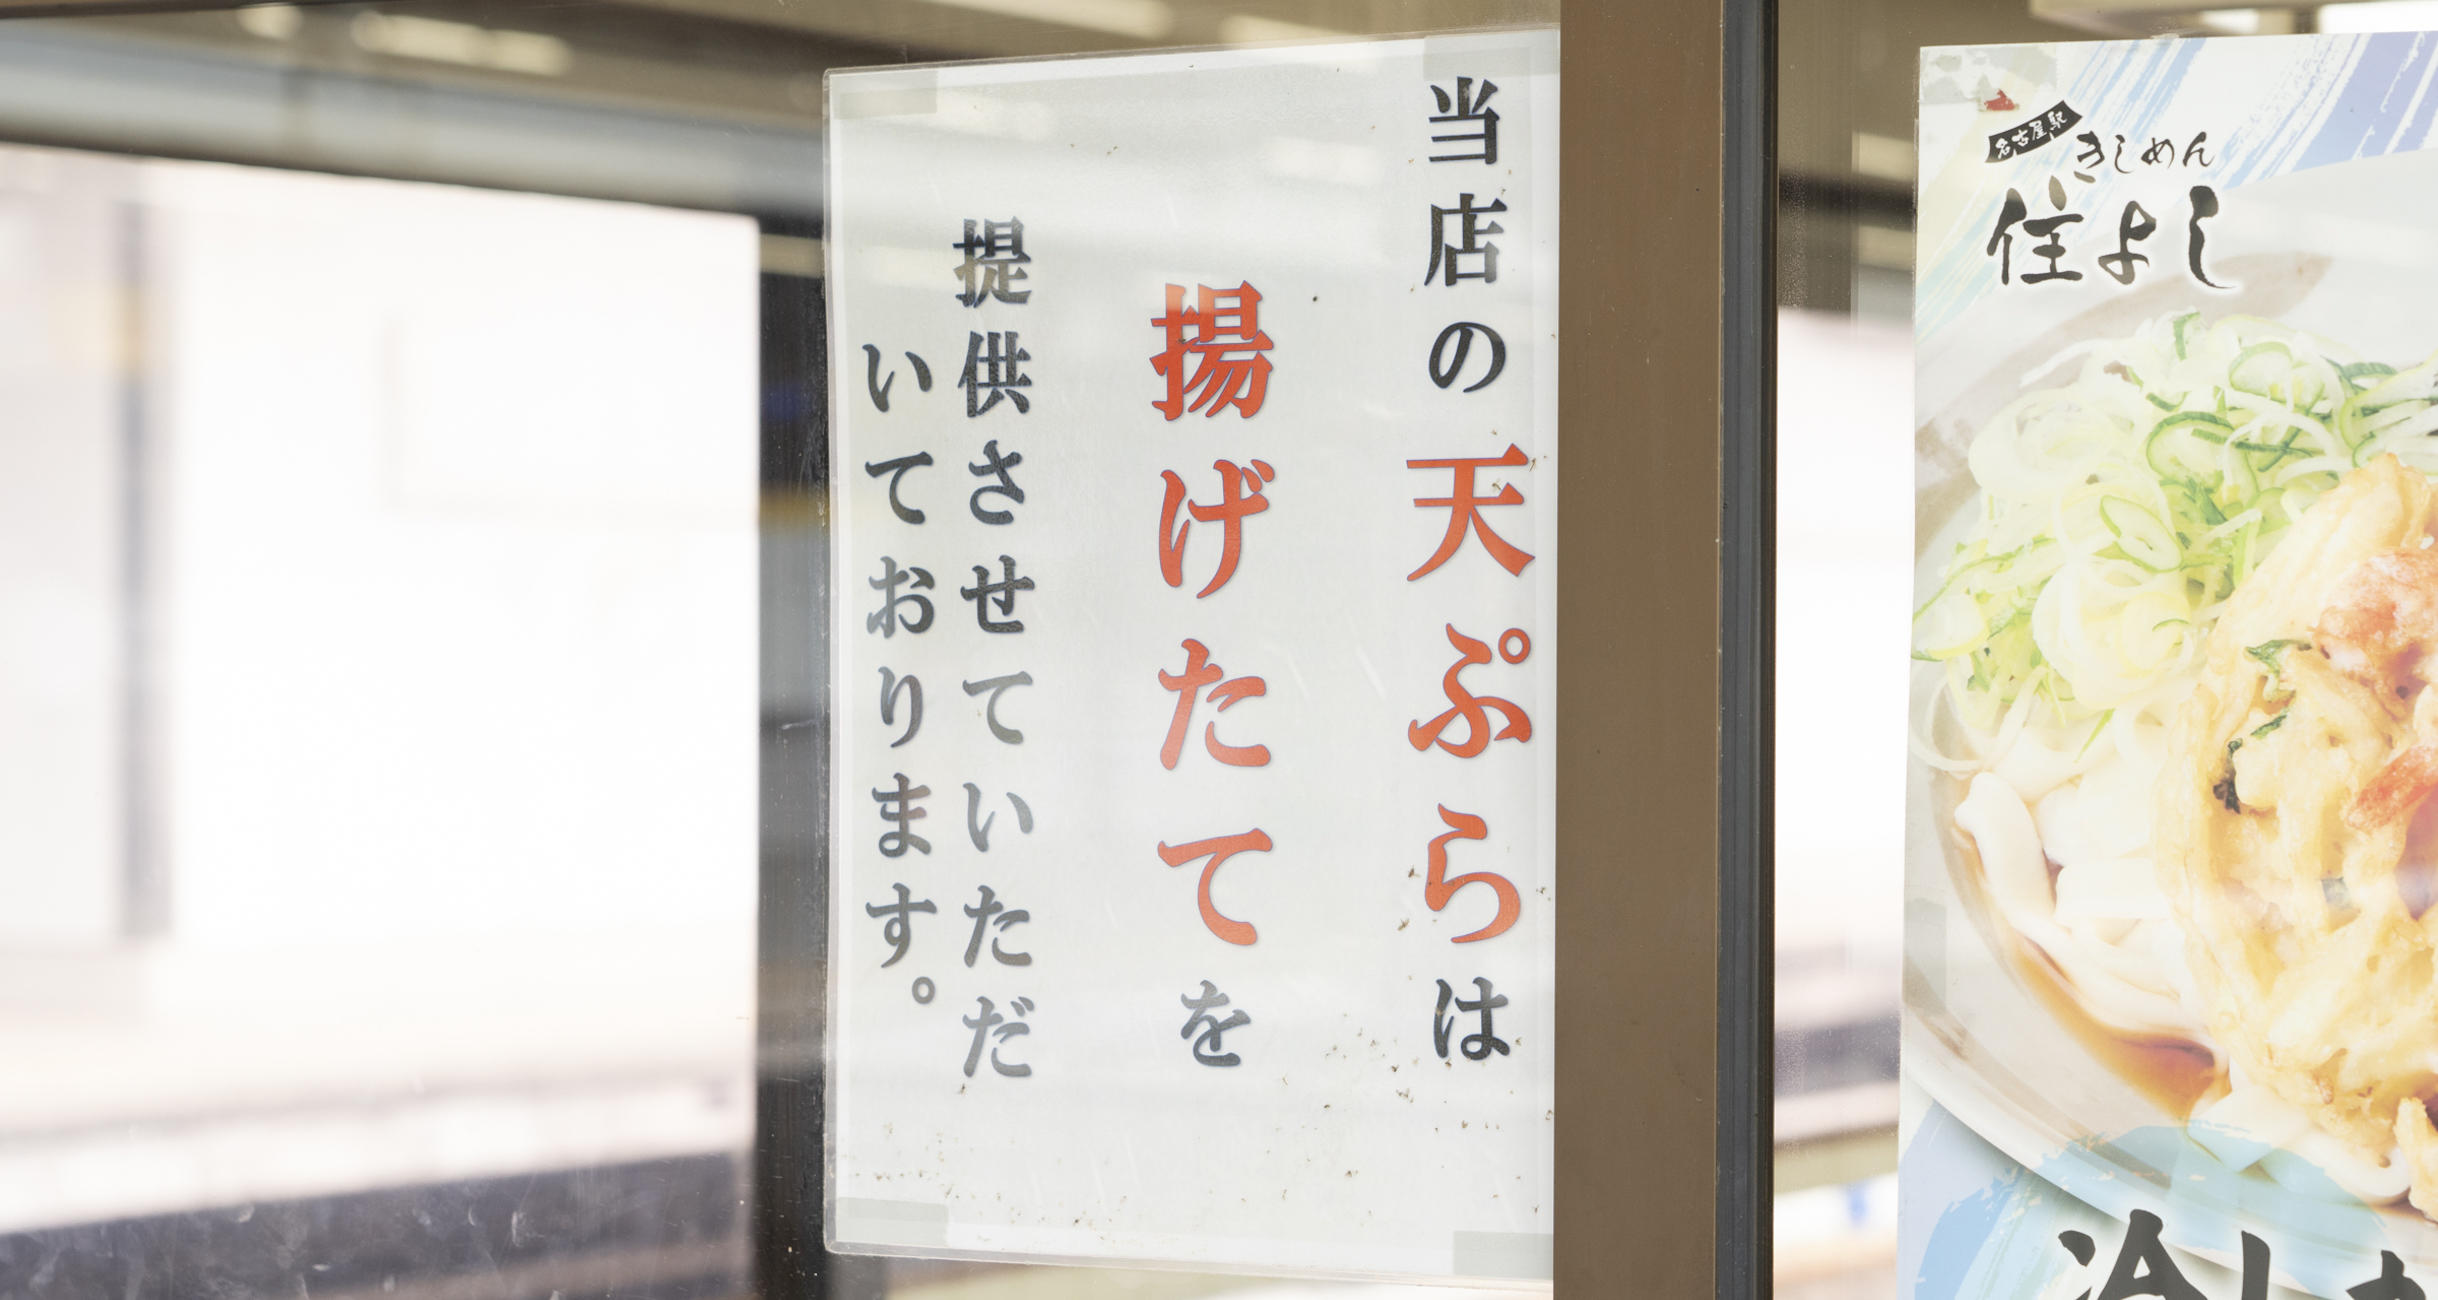 当店の天ぷらは
揚げたてを
提供させていただ
いております。
名古屋駅
きしめん
住よし
冷し